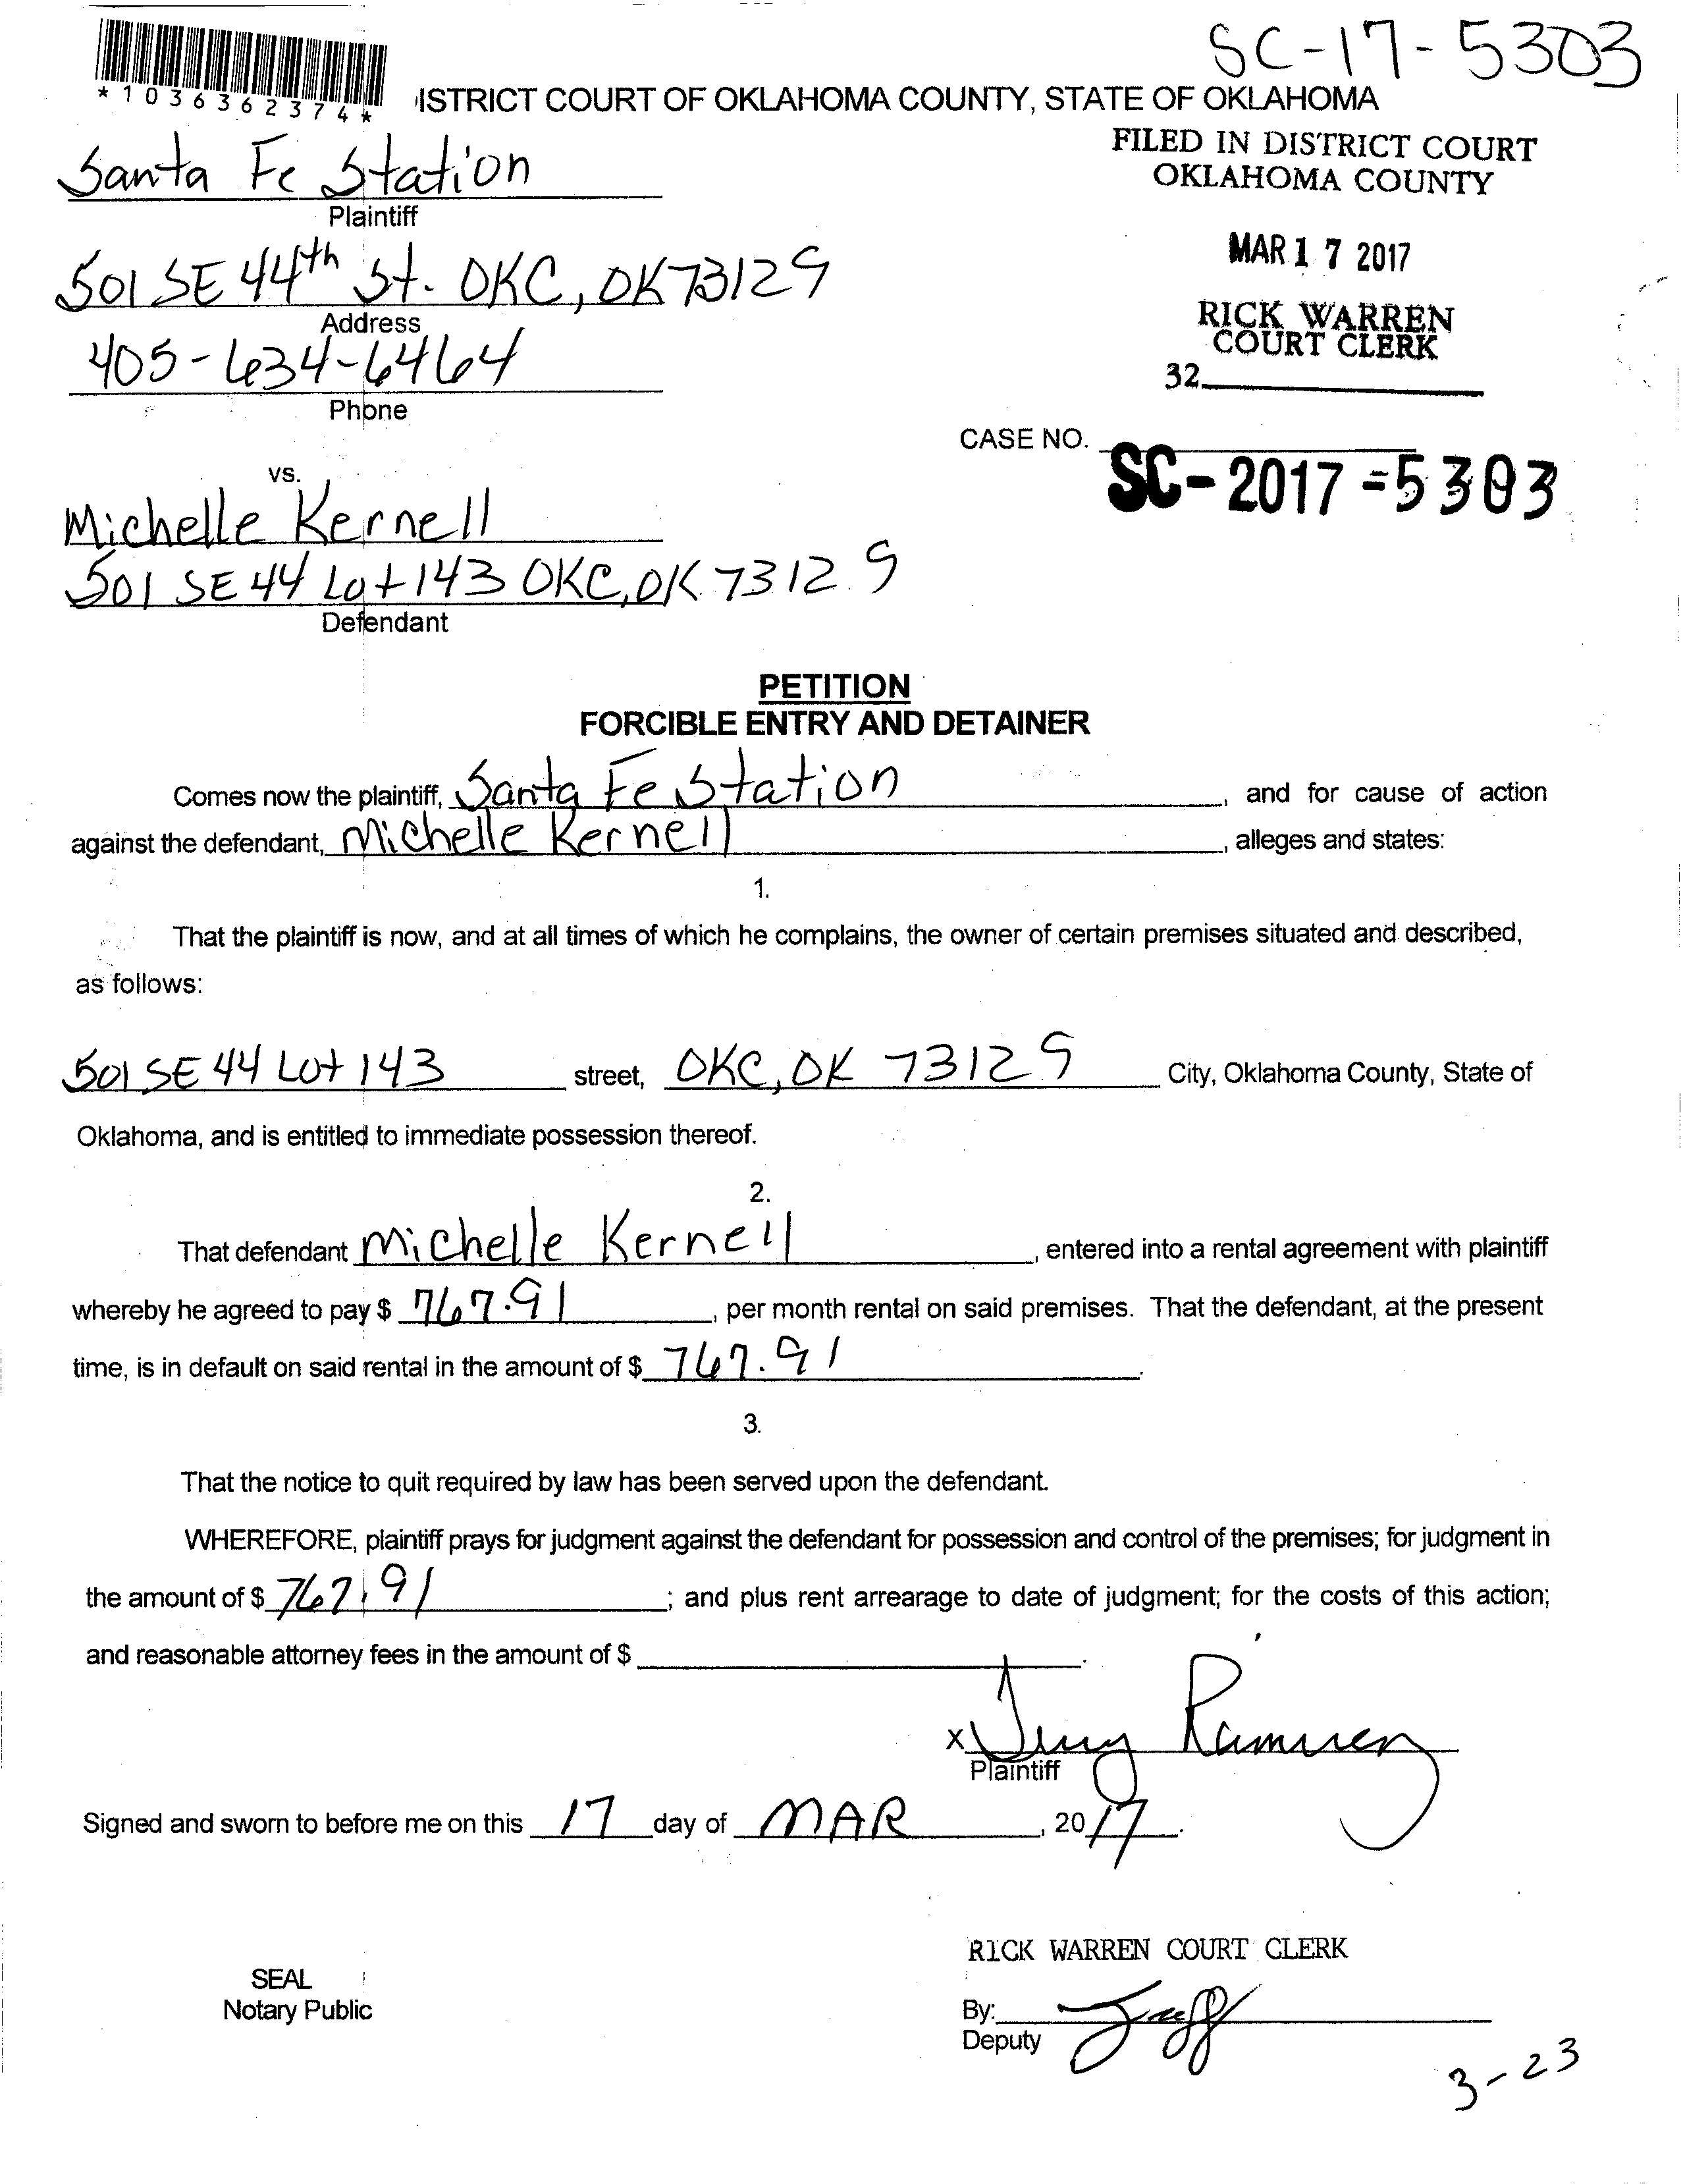 SC-17-5303
*1036362374*
ISTRICT COURT OF OKLAHOMA COUNTY, STATE OF OKLAHOMA
FILED IN DISTRICT COURT
OKLAHOMA COUNTY
MAR 17 2017
RICK WARREN
COURT CLERK
32
Santa Fe Station
Plaintiff
501 SE 44th St. OKC, OK 73129
Address
405-634-6464
Phone
CASE NO.
SC-2017-5303
vs.
Michelle Kernell
501 SE 44 Lot 143 OKC, OK 73129
Defendant
PETITION
FORCIBLE ENTRY AND DETAINER
Comes now the plaintiff, Santa Fe Station, and for cause of action
against the defendant, Michelle Kernell, alleges and states:
1.
That the plaintiff is now, and at all times of which he complains, the owner of certain premises situated and described,
as follows:
501 SE 44 Lot 143 street, OKC, OK 73129 City, Oklahoma County, State of
Oklahoma, and is entitled to immediate possession thereof.
2.
That defendant Michelle Kernell, entered into a rental agreement with plaintiff
whereby he agreed to pay $ 767.91, per month rental on said premises. That the defendant, at the present
time, is in default on said rental in the amount of $ 767.91.
3.
That the notice to quit required by law has been served upon the defendant.
WHEREFORE, plaintiff prays for judgment against the defendant for possession and control of the premises; for judgment in
the amount of $ 767.91; and plus rent arrearage to date of judgment; for the costs of this action;
and reasonable attorney fees in the amount of $.
X Ramirez
Plaintiff
Signed and sworn to before me on this 17 day of MAR, 2017.
RICK WARREN COURT CLERK
SEAL
Notary Public
By:
Deputy
3-23